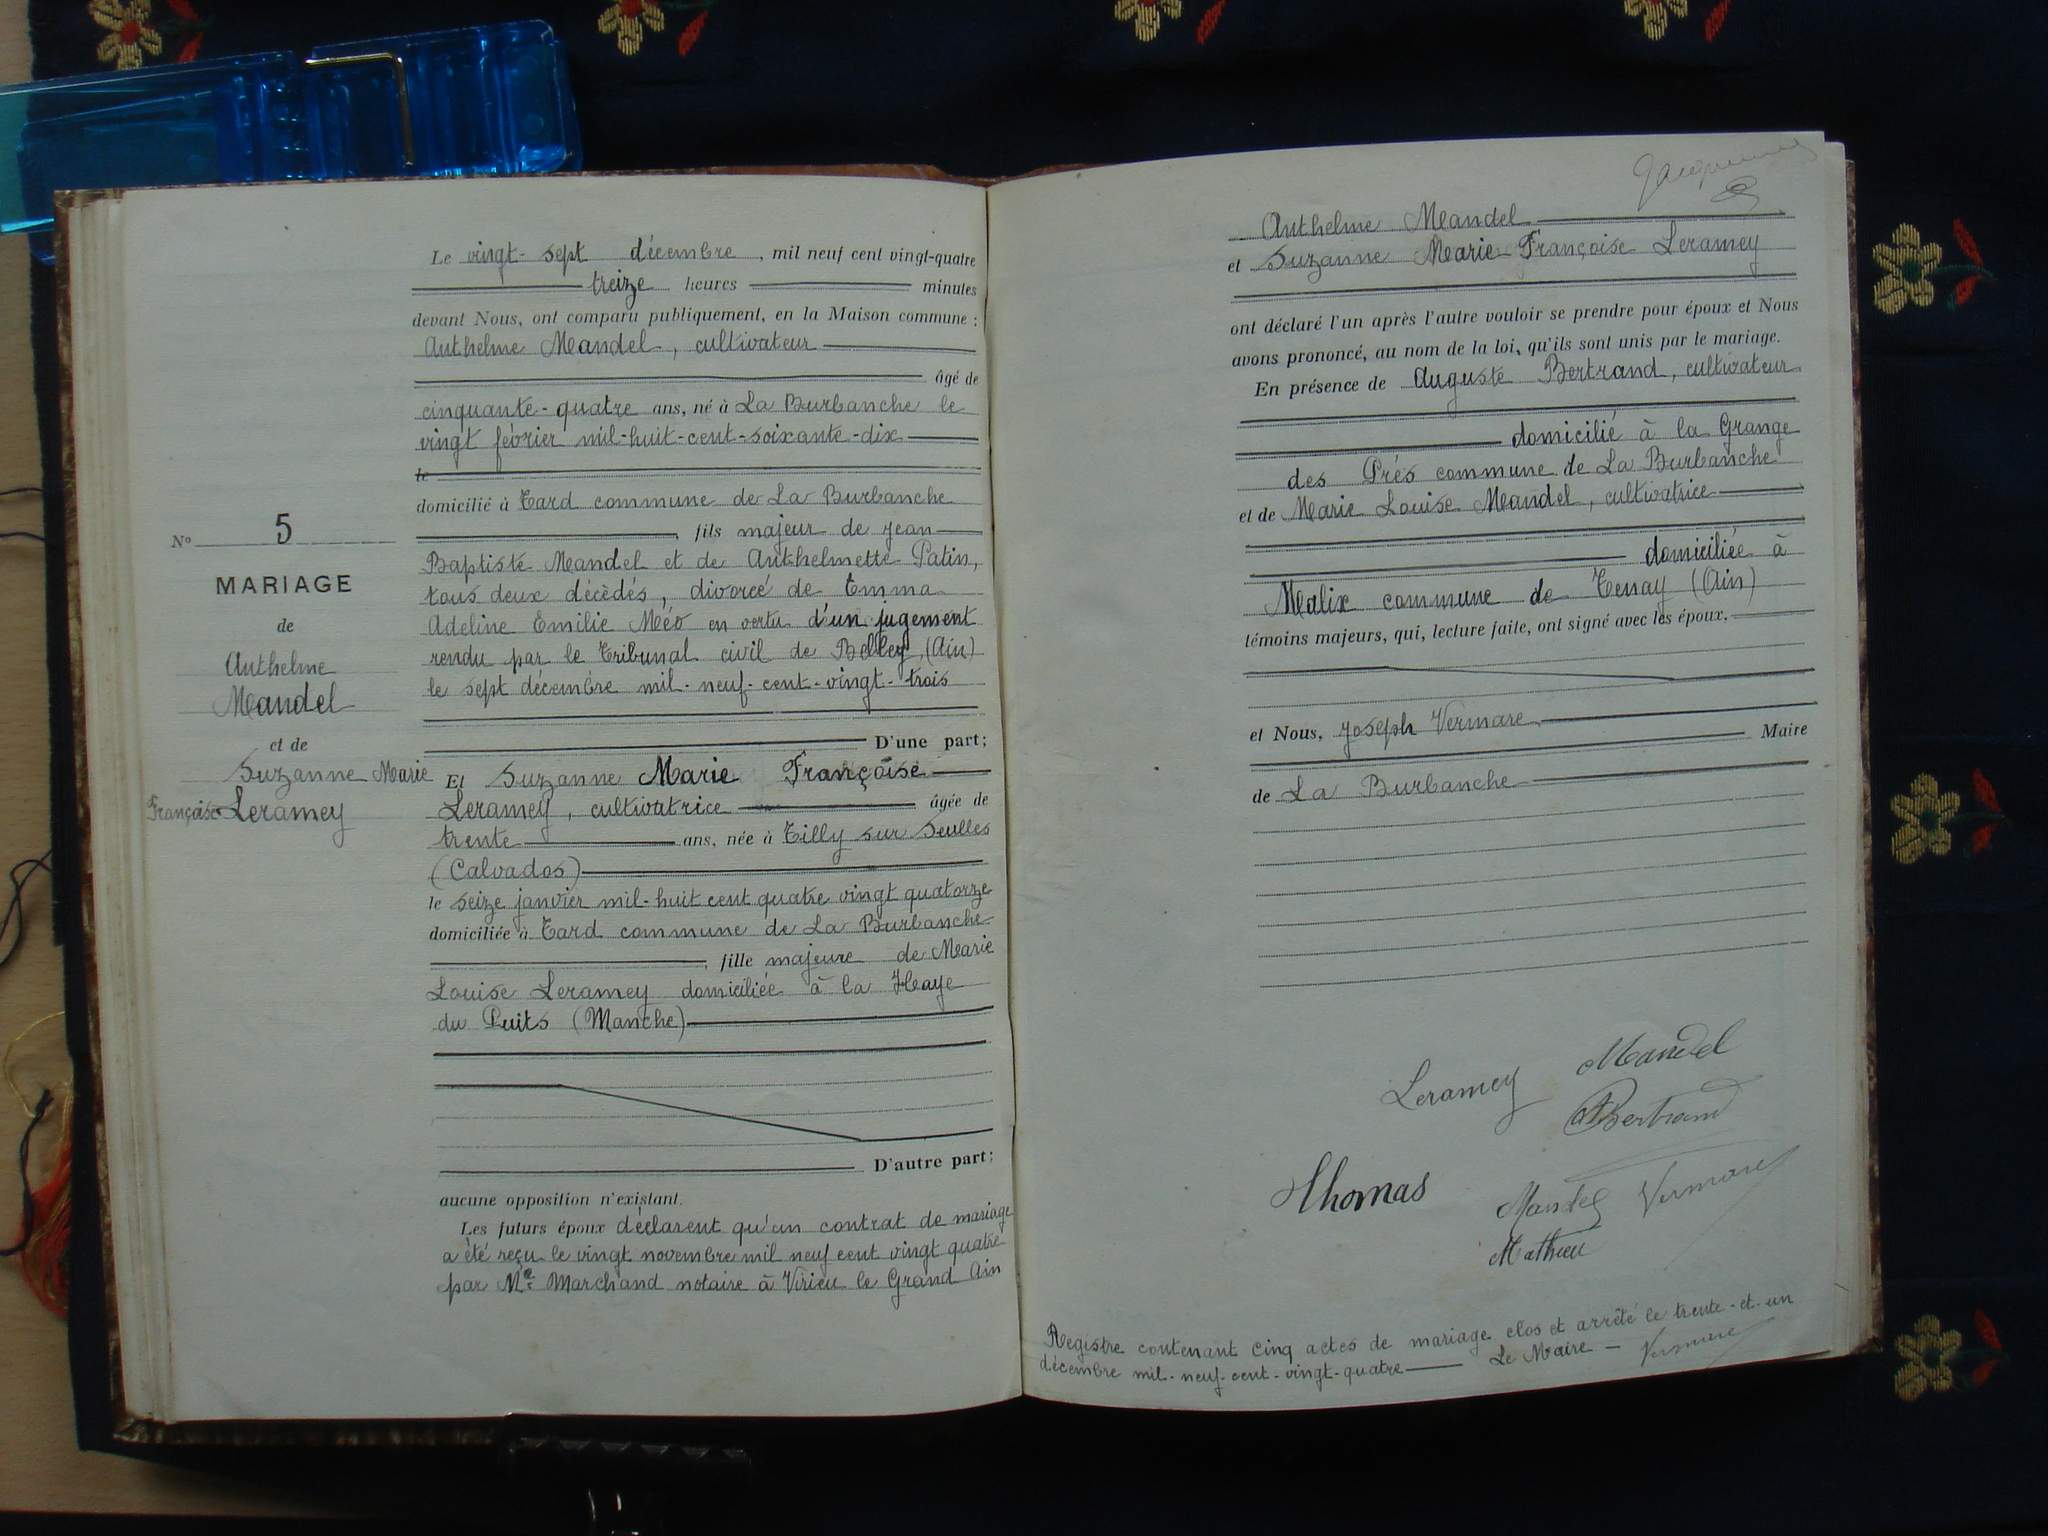 Le vingt-sept décembre, mil neuf cent vingt-quatre
treize heures minutes
devant Nous, ont comparu publiquement, en la Maison commune :
Anthelme Mandel, cultivateur
âgé de
cinquante-quatre ans, né à La Burbanche le
vingt février mil-huit-cent-soixante-dix
le
domicilié à Tard commune de La Burbanche
, fils majeur de Jean
Baptiste Mandel et de Anthelmette Patin,
tous deux décèdés, divorcé de Emma
Adeline Emilie Méo en vertu d'un jugement
rendu par le Tribunal civil de Belley, (Ain)
le sept décembre mil-neuf-cent-vingt-trois
D'une part;
Et Suzanne Marie Françoise
Leramey, cultivatrice âgée de
trente ans, née à Tilly sur Seulles
(Calvados)
le seize janvier mil-huit cent quatre vingt quatorze
domiciliée à Tard commune de La Burbanche
, fille majeure de Marie
Louise Leramey domiciliée à la Haye
du Puits (Manche)
D'autre part;
aucune opposition n'existant.
Les futurs époux déclarent qu'un contrat de mariage
a été reçu le vingt novembre mil neuf cent vingt quatre
par Me Marchand notaire à Virieu le Grand Ain
No 5
MARIAGE
de
Anthelme
Mandel
et de
Suzanne Marie
Françoise Leramey
Anthelme Mandel
et Suzanne Marie Françoise Leramey
ont déclaré l'un après l'autre vouloir se prendre pour époux et Nous
avons prononcé, au nom de la loi, qu'ils sont unis par le mariage.
En présence de Auguste Bertrand, cultivateur
domicilié à la Grange
des Prés commune de La Burbanche
et de Marie Louise Mandel, cultivatrice
domiciliée à
Malix commune de Tenay (Ain)
témoins majeurs, qui, lecture faite, ont signé avec les époux.
et Nous, Joseph Vermare
Maire
de La Burbanche
Leramey Mandel
ABertrand
Thomas Mandel Vermare
Mathieu
Registre contenant cinq actes de mariage clos et arrêté le trente-et-un
décembre mil-neuf-cent-vingt-quatre Le Maire - Vermare